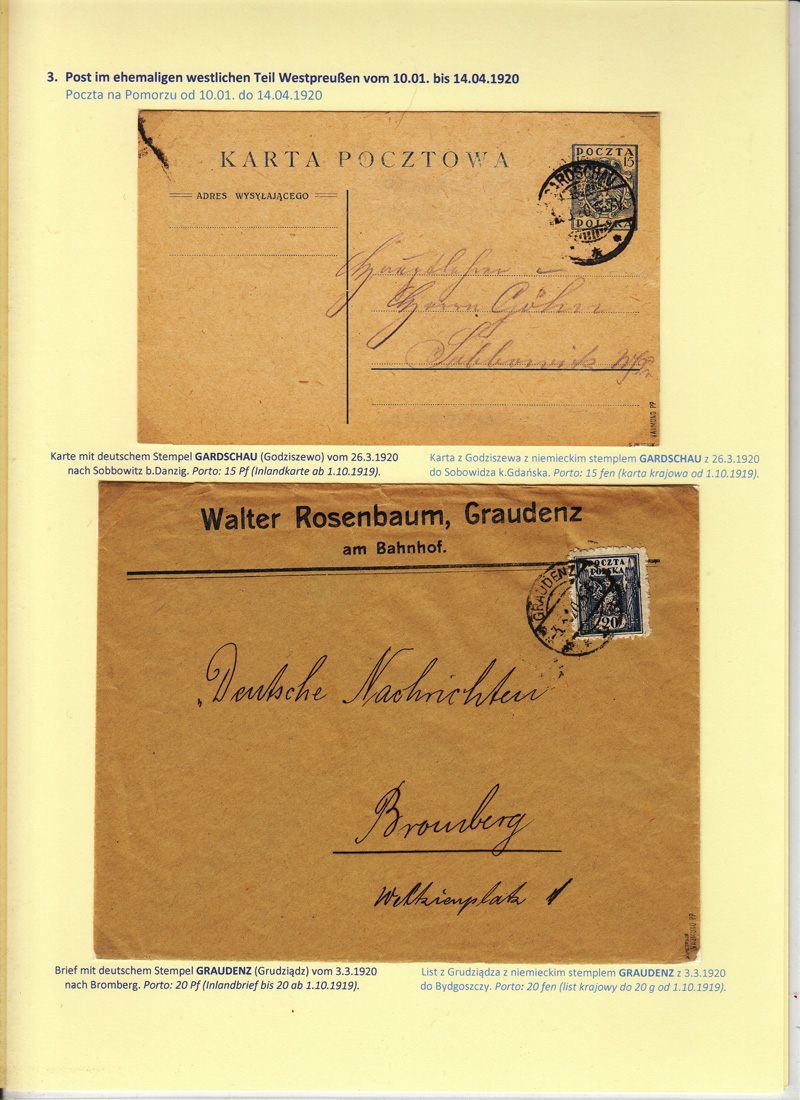 3. Post im ehemaligen westlichen Teil Westpreußen vom 10.01. bis 14.04.1920
Poczta na Pomorzu od 10.01. do 14.04.1920
KARTA POCZTOWA
POCZTA
15 15
POLSKA
GARDSCHAU
ADRES WYSYŁAJĄCEGO
Hauptlehrer
Herrn Göhm
Sobbowitz
VALMONO PP
Karte mit deutschem Stempel GARDSCHAU (Godziszewo) vom 26.3.1920
nach Sobbowitz b.Danzig. Porto: 15 Pf (Inlandkarte ab 1.10.1919).
Karta z Godziszewa z niemieckim stemplem GARDSCHAU z 26.3.1920
do Sobowidza k.Gdańska. Porto: 15 fen (karta krajowa od 1.10.1919).
Walter Rosenbaum, Graudenz
am Bahnhof.
POCZTA
POLSKA
20
GRAUDENZ
„Deutsche Nachrichten
Bromberg
Weltzienplatz 1
VALMONO PP
Brief mit deutschem Stempel GRAUDENZ (Grudziądz) vom 3.3.1920
nach Bromberg. Porto: 20 Pf (Inlandbrief bis 20 ab 1.10.1919).
List z Grudziądza z niemieckim stemplem GRAUDENZ z 3.3.1920
do Bydgoszczy. Porto: 20 fen (list krajowy do 20 g od 1.10.1919).